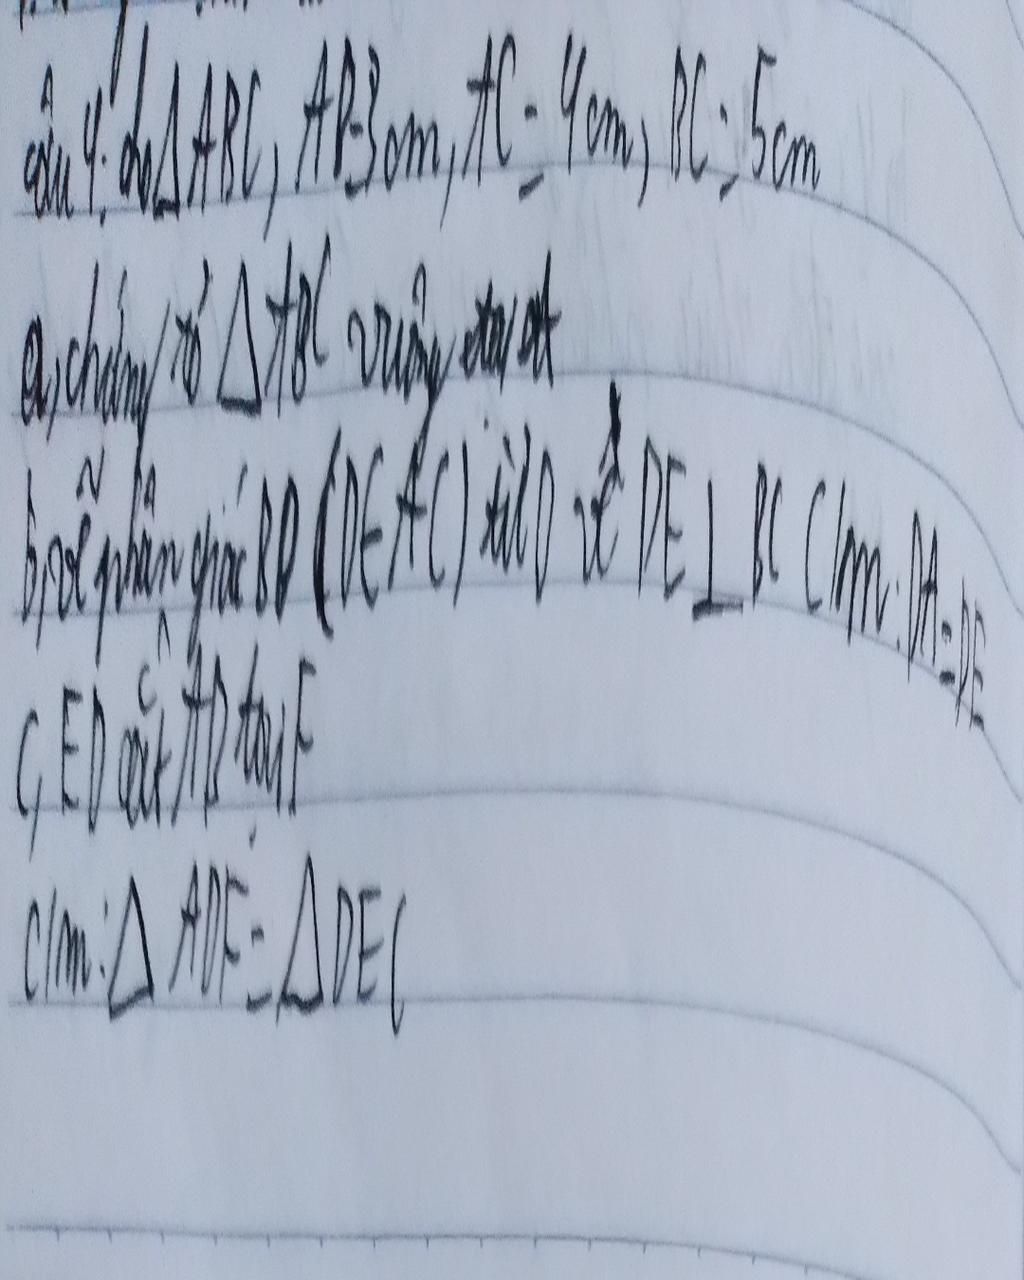 câu 4: cho △ABC, AB=3cm, AC=4cm, BC=5cm
a, chứng tỏ △ABC vuông tại A
b, vẽ phân giác BD (D∈AC) từ D vẽ DE⊥BC C/m: DA=DE
c, ED cắt AB tại F
C/m: △ADF=△DEC